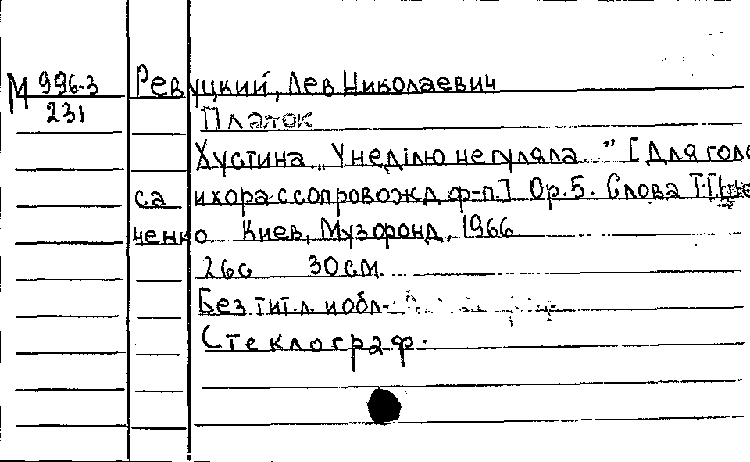 М 996-3
231
Ревуцкий, Лев Николаевич
Платок
Хустина „У неділю не гуляла..." [Для голо
са и хора с сопровожд. ф-п.] Ор. 5. Слова Т. Шев
ченко Киев, Музфонд, 1966
26с 30 см.
Без тит. л. и обл.
Стеклограф.